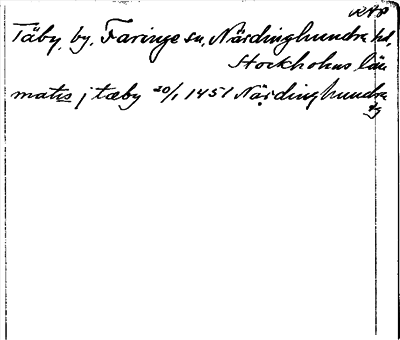 RAP
Täby, by, Faringe sn, Närdinghundra hd,
Stockholms län
matis j tæby 20/1 1451 Närdinghundra
dg